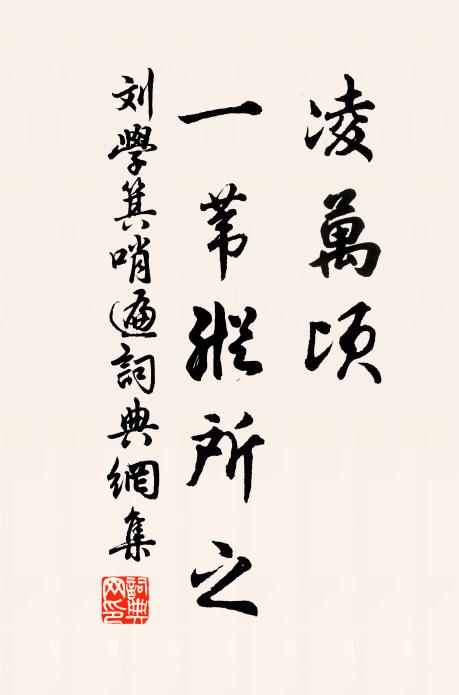 凌萬頃
一苇縱所之
刘學箕哨遍詞典網集
詞典网印